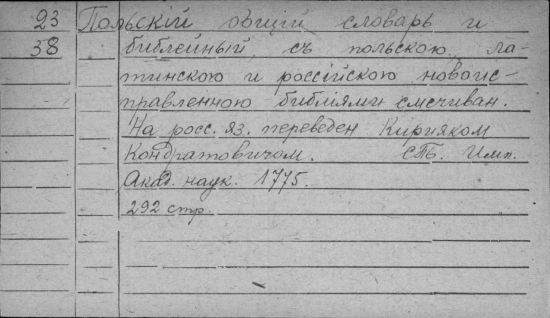 23 Польскій общій словарь и
38 библейный, съ польскою, ла-
тинскою и россійскою новоис-
правленною библіями смечиван.
На росс. яз. переведен Кирияком
Кондратовичом. СПб. Имп.
Акад. наук. 1775.
292 стр.